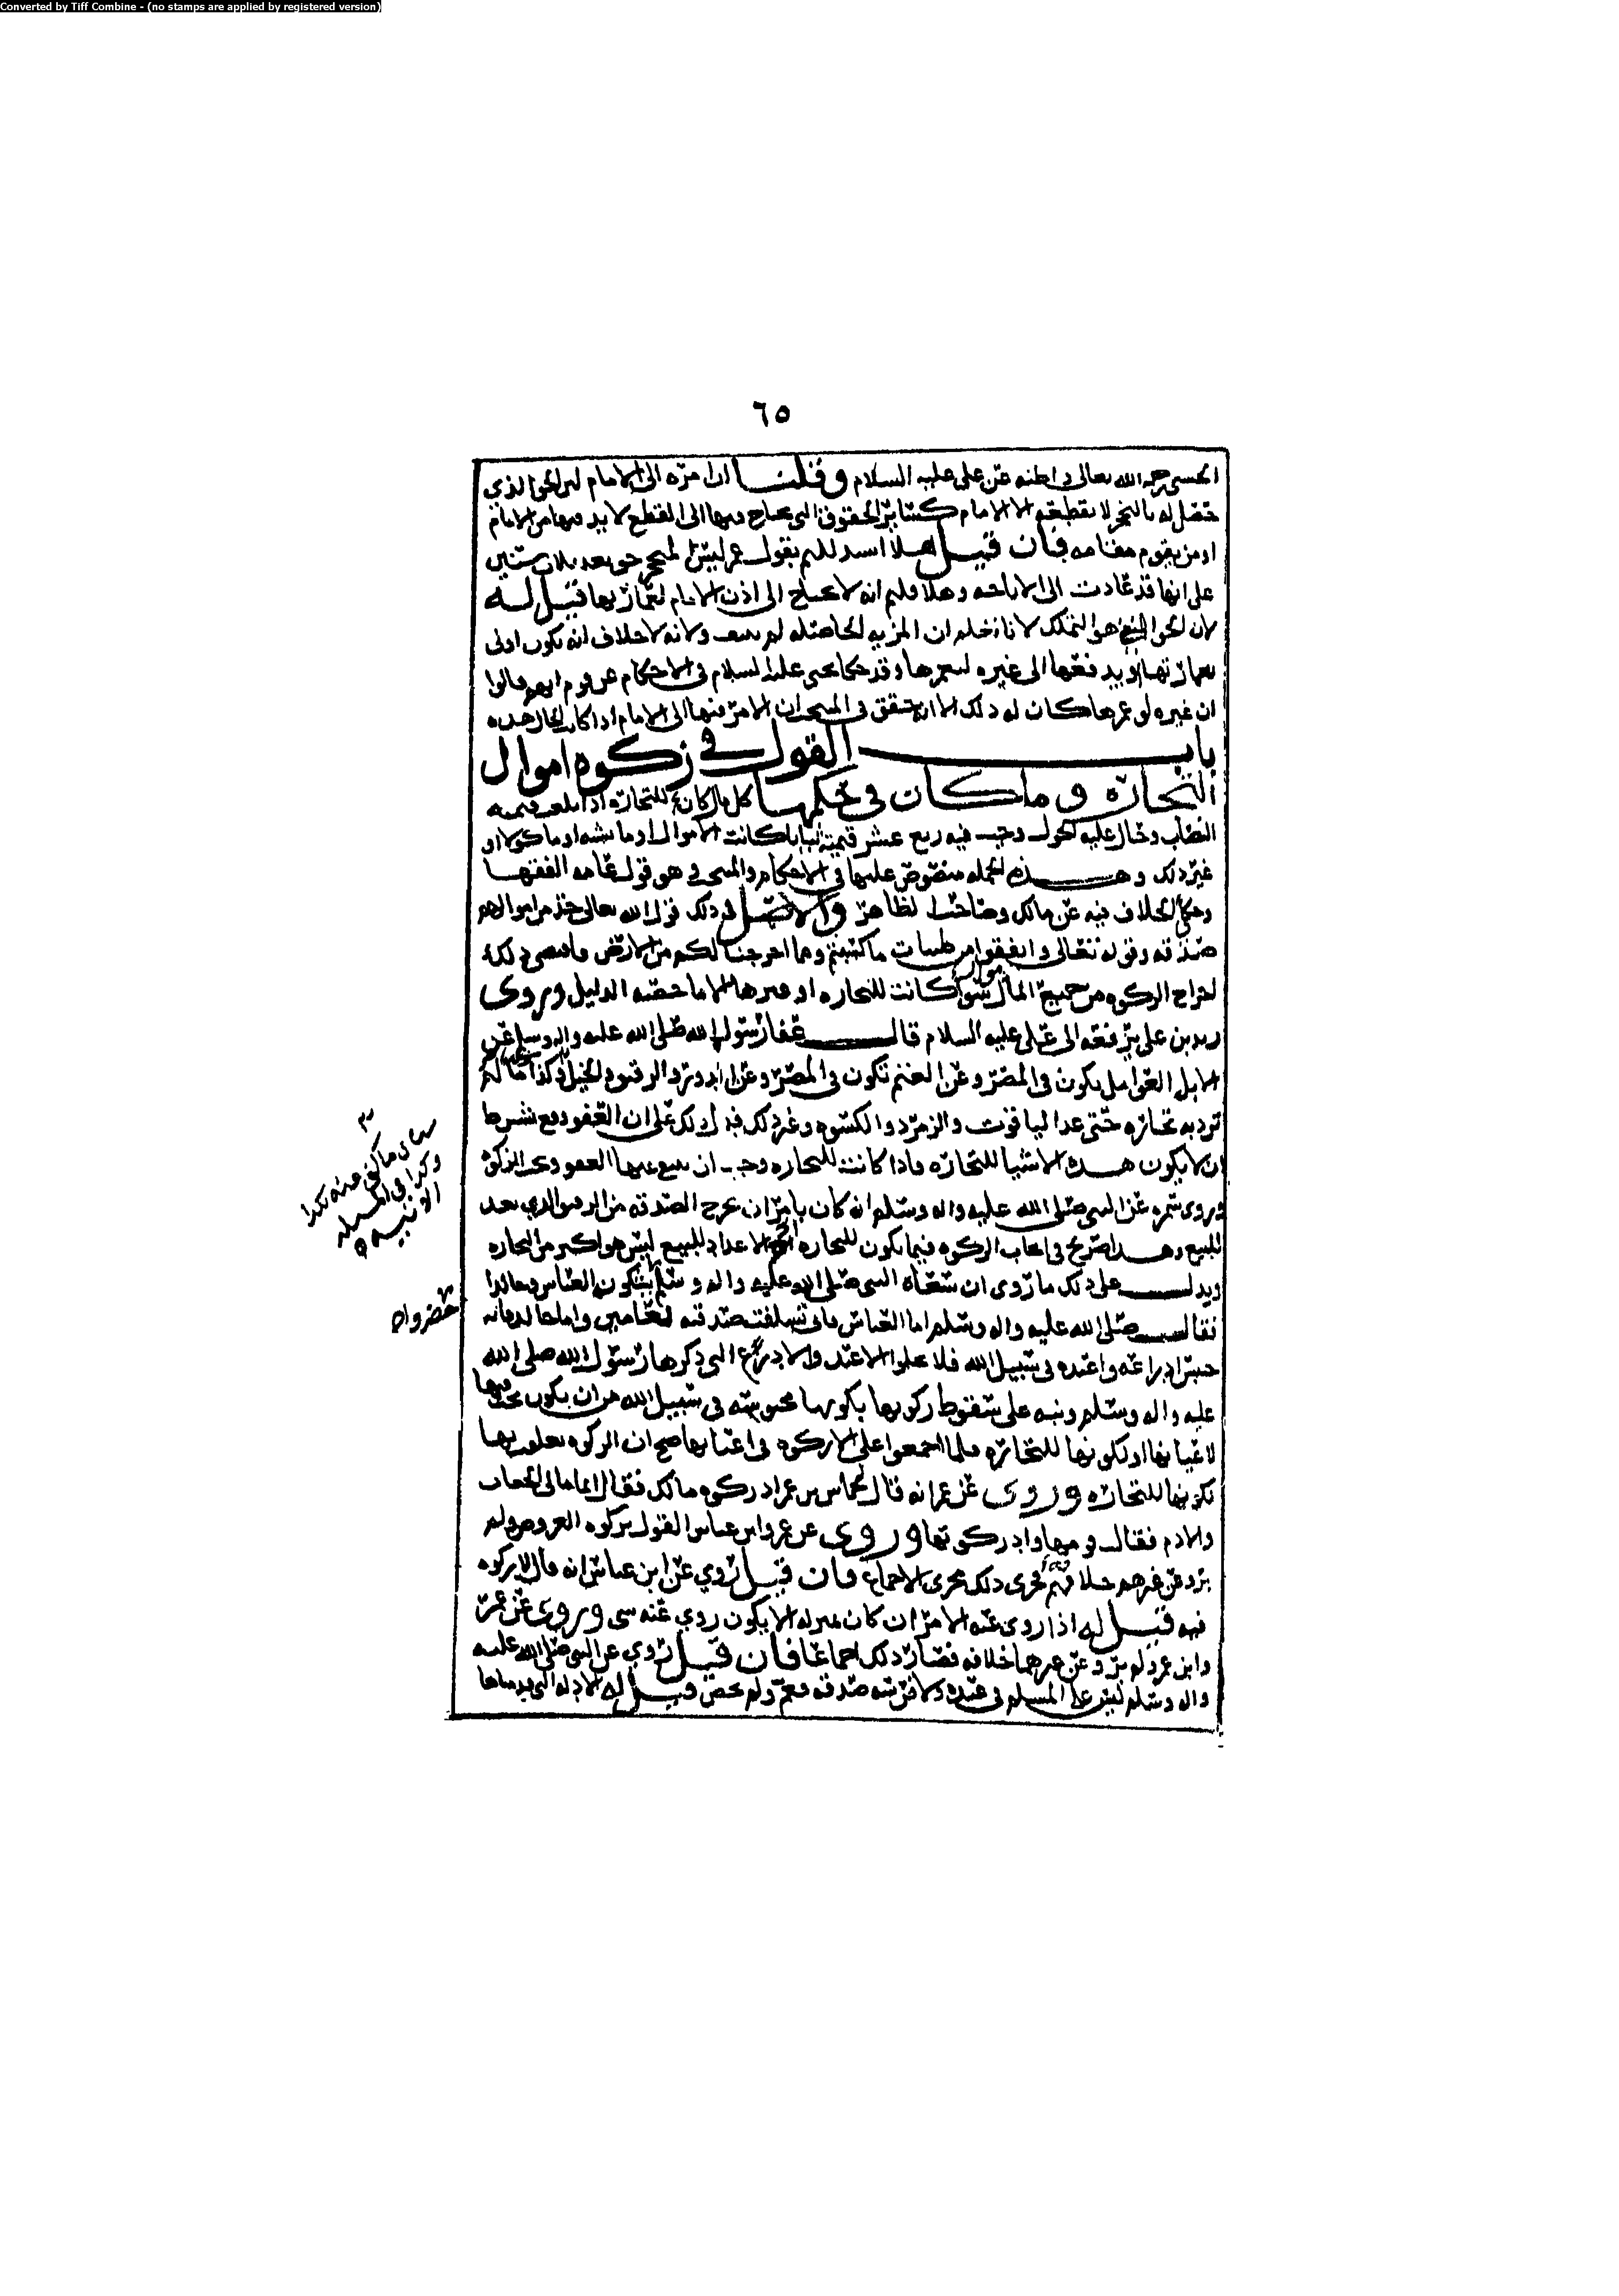 Converted by Tiff Combine - (no stamps are applied by registered version)
٦٥
الحسني رحمه الله تعالى واظنه عن علي عليه السلام وقلنا ان امره الى الامام لان الحق الذي
حصل له بالتحجر لا يقطعه الا الامام كسائر الحقوق التي يحتاج فيها الى القطع لا بد فيها من الامام
او من يقوم مقامه فان قيل هلا استدللتم بقول عمر ليس لمتحجر حق بعد ثلاث سنين
على انها قد عادت الى الاباحه وهلا قلتم انه لا يحتاج الى اذن الامام لعمارتها قيل له
لان الحق هو التملك لانا نعلم ان المزيه الحاصله له ولانه لا خلاف انه يكون اولى
بعمارتها او يدفعها الى غيره ليعمرها وقد حكا يحيى عليه السلام في الاحكام عن قوم انهم قالوا
ان غيره لو عمرها كان له ذلك الا ان في المنتخب ان الامر فيها الى الامام اذا كان الحال هذه
باب القول في زكوه اموال
التجاره وما كان في حكمها كل مال كان للتجاره اذا بلغت قيمته
النصاب وحال عليه الحول وجب فيه ربع عشر قيمته كانت الاموال او ماشيه او ماكولا او
غير ذلك وهذه الجمله منصوص عليها في الاحكام والمنتخب وهو قول عامه الفقها
وحكي الخلاف فيه عن مالك وصاحب الظاهر والاصل في ذلك قول الله تعالى خذ من اموالهم
صدقه وقوله تعالى وانفقوا من طيبات ما كسبتم ومما اخرجنا لكم من الارض فاقتضى ذلك
اخراج الزكوه من جميع المال سوا كانت للتجاره او غيرها الا ما خصه الدليل وروى
زيد بن علي يرفعه الى علي عليه السلام قال عفا رسول الله صلى الله عليه واله وسلم عن
الابل العوامل يكون في المصر وعن الغنم تكون في المصر وعن الدور والرقيق والخيل وكذا ما لم
ترد به تجاره حتى عد الياقوت والزمرد والكسوه وغير ذلك فدل ذلك على ان العفو وقع بشرط
ان لا يكون هذه الاشيا للتجاره فاذا كانت للتجاره وجب ان يرتفع عنها العفو وتجب الزكوه
وروى سمره عن النبي صلى الله عليه واله وسلم انه كان يامر ان نخرج الصدقه من الرقيق الذي يعد
للبيع وهذا صريح في ايجاب الزكوه فيما يكون للتجاره الاعداد للبيع ليس هو اكثر من التجاره
ويدل على ذلك ما روي ان سعاه النبي صلى الله عليه واله وسلم يشكون العباس وخالدا
فقال صلى الله عليه واله وسلم اما العباس فاني تسلفت صدقته لعامين واما خالد فانه
حبس ادراعه واعتده في سبيل الله فلا يخلوا الاعتد والادرع التي ذكرها رسول الله صلى الله
عليه واله وسلم ونبه على سقوط زكوتها بكونها محبوسه في سبيل الله من ان يكون تجب فيها
لاعيانها او لكونها للتجاره فلما اجمعوا على الا زكوه في اعيانها صح ان الزكوه تعلقت بها
لكونها للتجاره وروى عن عمر انه قال لحماس بن عمر اد زكوه مالك فقال انما مالي الجعاب
والادم فقال قومها واد زكوتها وروى عن عمر وابن عباس القول بزكوه العروض ولم
يرو عن غيرهم خلافهم فجرى ذلك مجرى الاجماع فان قيل روي عن ابن عباس انه قال لا زكوه
فيه قيل له اذا روي عنه الامران كان بمنزله الا يكون روي عنه شي وروى عن عمر
وابن عمر ولم يرو عن غيرهما خلافه فصار ذلك اجماعا فان قيل روي عن النبي صلى الله عليه
واله وسلم ليس على المسلم في عبده ولا فرسه صدقه فعم ولم يخص قيل له الادله التي قدمناها